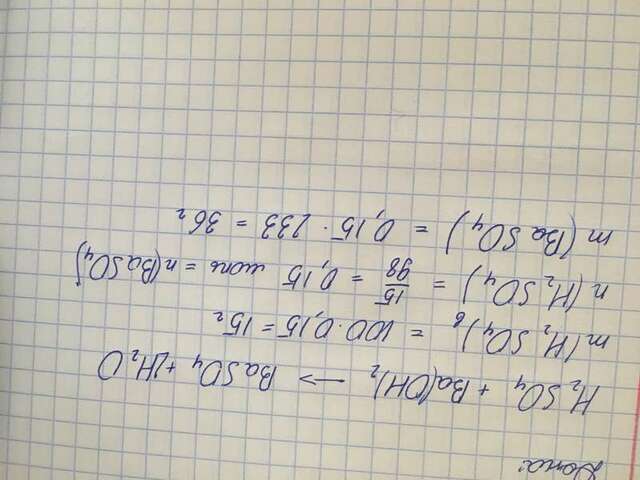 Дапа:
H₂SO₄ + Ba(OH)₂ —> BaSO₄ + 2H₂O
m(H₂SO₄)в = 100·0,15 = 15г
n(H₂SO₄) = 15/98 = 0,15 моль = n(BaSO₄)
m(BaSO₄) = 0,15·233 = 36г